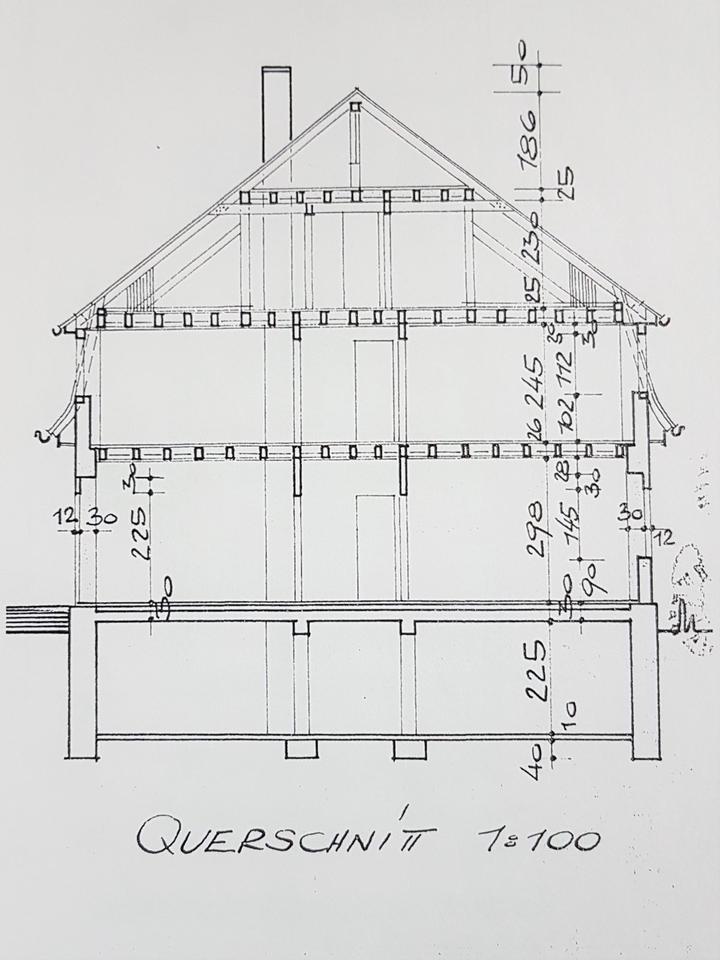 50
186
25
230
25
26
30
245
112
102
26
28
30
30
225
298
145
12 30
30 12
90
30
30
225
10
40
QUERSCHNITT 1:100